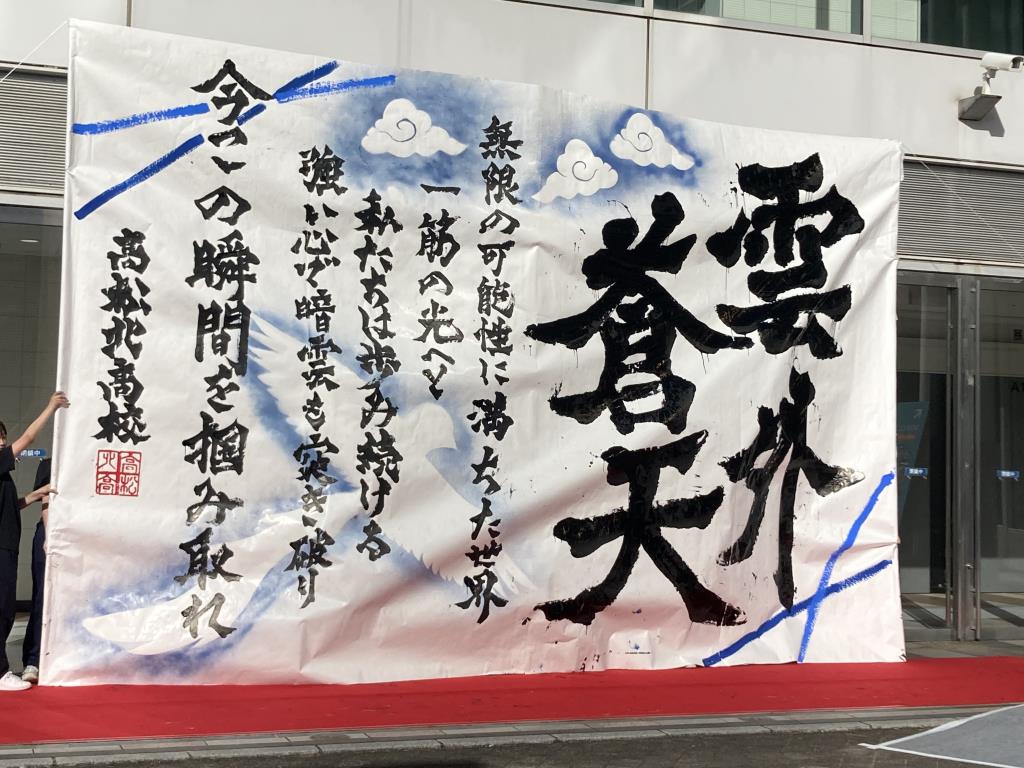 雲外
蒼天
無限の可能性に満ちた世界
一筋の光へと
私たちは歩み続ける
強い心で暗雲を突き破り
今この瞬間を掴み取れ
高松北高校
高松
北高